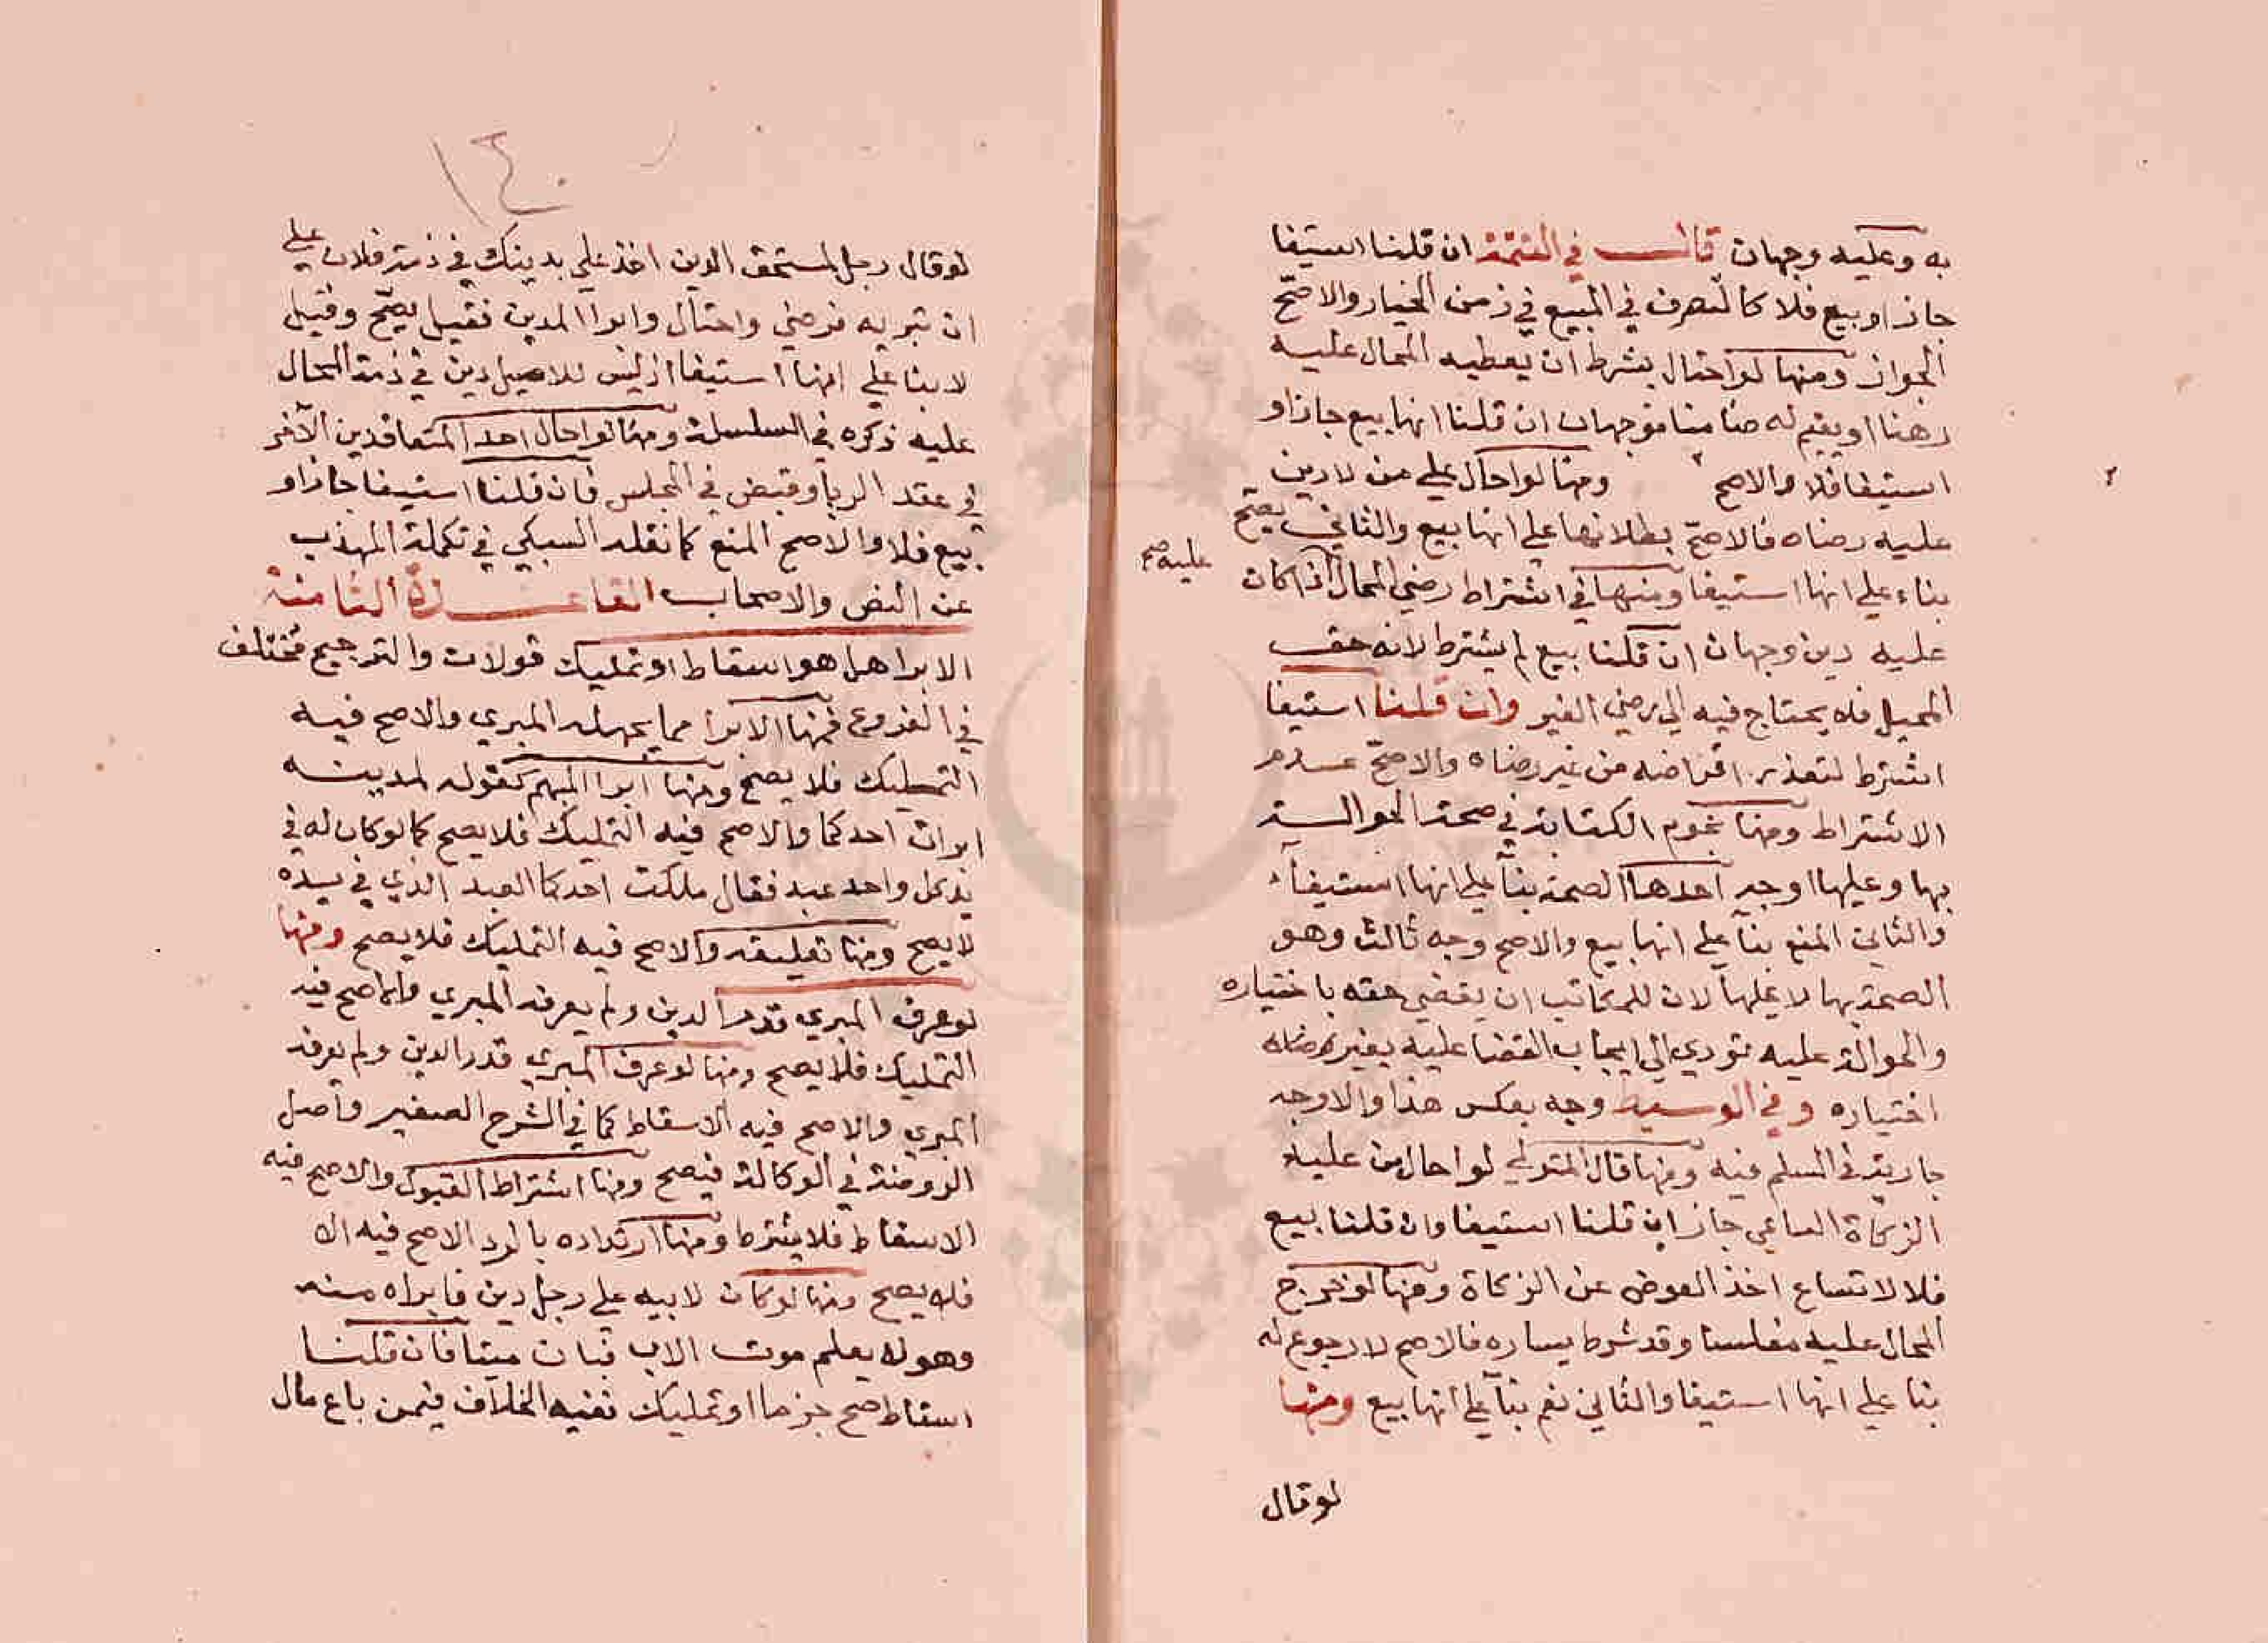 به وعليه وجهان قال في التتمة ان قلنا استيفا
جاز او بيع فلا كالتصرف في المبيع في زمن الخيار والاصح
الجواز ومنها لو احتال بشرط ان يعطيه المحال عليه
رهنا او يقيم له ضامنا فوجهان ان قلنا انها بيع جاز او
استيفا فلا والاصح ومنها لو احال على من لا دين
عليه برضاه فالاصح بطلانها على انها بيع والثاني يصح
بناء على انها استيفا ومنها في اشتراط رضي المحال اذا كان
عليه صح
عليه دين وجهان ان قلنا بيع لم يشترط لانه حق
المحيل فلا يحتاج فيه الي رضي الغير وان قلنا استيفا
اشترط لتعذر اقراضه من غير رضاه والاصح عدم
الاشتراط ومنها نجوم الكتابة في صحة الحوالة
بها وعليها اوجه احدها الصحة بنآ علي انها استيفآء
والثاني المنع بنآ علي انها بيع والاصح وجه ثالث وهو
الصحة بها لا عليها لان للمكاتب ان يقضي حقه باختياره
والحوالة عليه تؤدي الي ايجاب القضا عليه بغير
اختياره وفي الوسيط وجه بعكس هذا والاوجه
جارية في المسلم فيه ومنها قال المتولي لو احال من عليه
الزكاة الساعي جاز ان قلنا استيفا وان قلنا بيع
فلا لامتناع اخذ العوض عن الزكاة ومنها لو خرج
المحال عليه مفلسا وقد شرط يساره فالاصح لا رجوع له
بنا علي انها استيفا والثاني نعم بنآ علي انها بيع ومنها
لو قال
١٤٠
لو قال رجل لمستحق الدين احتل علي بدينك في ذمة فلان علي
ان تبريه فرضي واحتال وابرا المدين فقيل يصح وقيل
لا بنا علي انها استيفا اذ ليس للاصيل دين في ذمة المحال
عليه ذكره في السلسلة ومنها لو احال احد المتعاقدين الآخر
في عقد الربا وقبض في المجلس فان قلنا استيفا جاز او
بيع فلا والاصح المنع كما نقله السبكي في تكملة المهذب
عن النص والاصحاب القاعدة الثامنة
الابرا هل هو اسقاط او تمليك قولان والترجيح مختلف
في الفروع فمنها الابرا مما يجهله المبري والاصح فيه
التمليك فلا يصح ومنها ابرا المبهم كقوله لمدينيه
ابرات احدكما والاصح فيه التمليك فلا يصح كما لو كان له في
يد كل واحد عبد فقال ملكت احدكما العبد الذي في يده
لا يصح ومنها تعليقه والاصح فيه التمليك فلا يصح ومنها
لو عرف المبري قدر الدين ولم يعرفه المبري والاصح فيه
التمليك فلا يصح ومنها لو عرف المبري قدر الدين ولم يعرفه
المبري والاصح فيه الاسقاط كما في الشرح الصغير واصل
الروضة في الوكالة فيصح ومنها اشتراط القبول والاصح فيه
الاسقاط فلا يشترط ومنها ارتداده بالرد الاصح فيه الا
فلا يصح ومنها لو كان لابيه علي رجل دين فابراه منه
وهو لا يعلم موت الاب فبان ميتا فان قلنا
اسقاط صح جزما او تمليك ففيه الخلاف فيمن باع مال